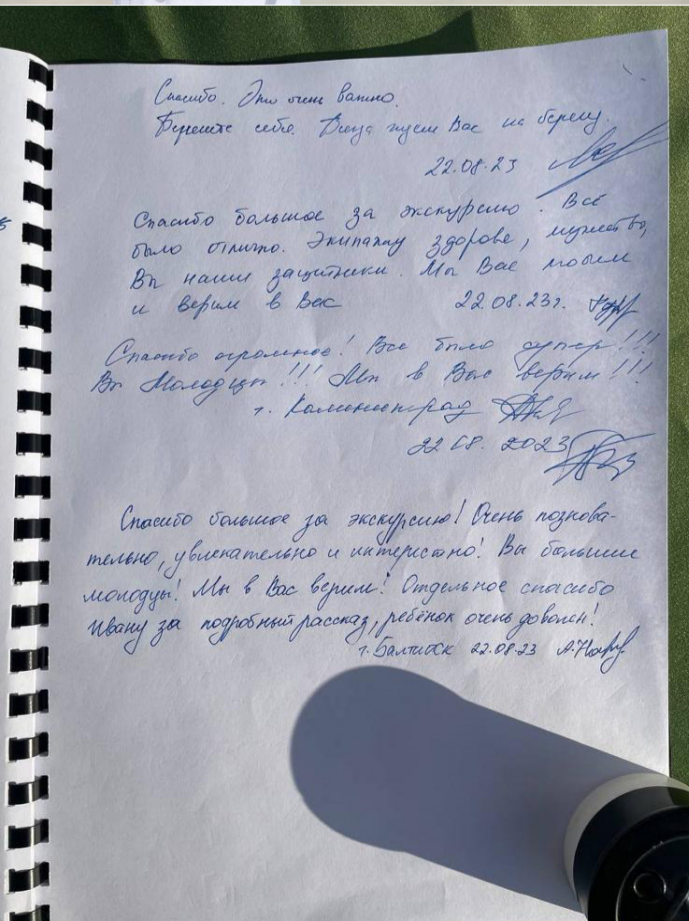 Спасибо. Это очень важно.
Берегите себя. Всегда ждем Вас на берегу.
22.08.23
Спасибо большое за экскурсию. Всё
было отлично. Экипажу здоровье, мужества,
Вы наши защитники. Мы Вас любим
и верим в Вас 22.08.23г.
Спасибо огромное! Все было супер!!!
Вы Молодцы!!! Мы в Вас верим!!!
г. Калининград
22.08.2023
Спасибо большое за экскурсию! Очень познова-
тельно, увлекательно и интересно! Вы большие
молодцы! Мы в Вас верим! Отдельное спасибо
Ивану за подробный рассказ, ребёнок очень доволен!
г. Балтийск 22.08.23